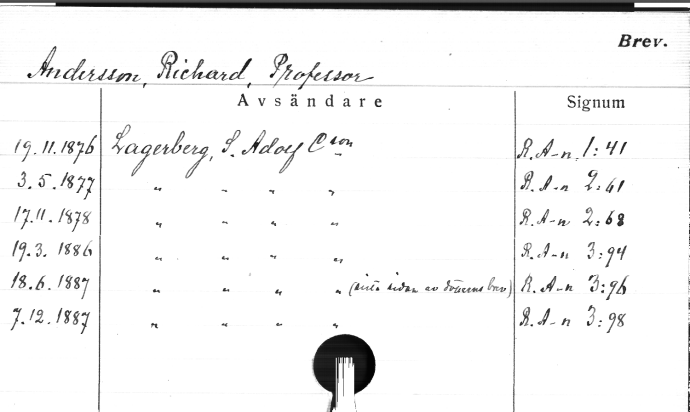 Brev.
Andersson, Richard, Professor
Avsändare Signum
19.11.1876 Lagerberg, S. Adolf Cson R. A-n 1:41
3.5.1877 " " " " R. A-n 2:61
17.11.1878 " " " " R. A-n 2:68
19.3.1886 " " " " R. A-n 3:94
18.6.1887 " " " " (sista sidan av dotterns brev) R. A-n 3:96
7.12.1887 " " " " R. A-n 3:98